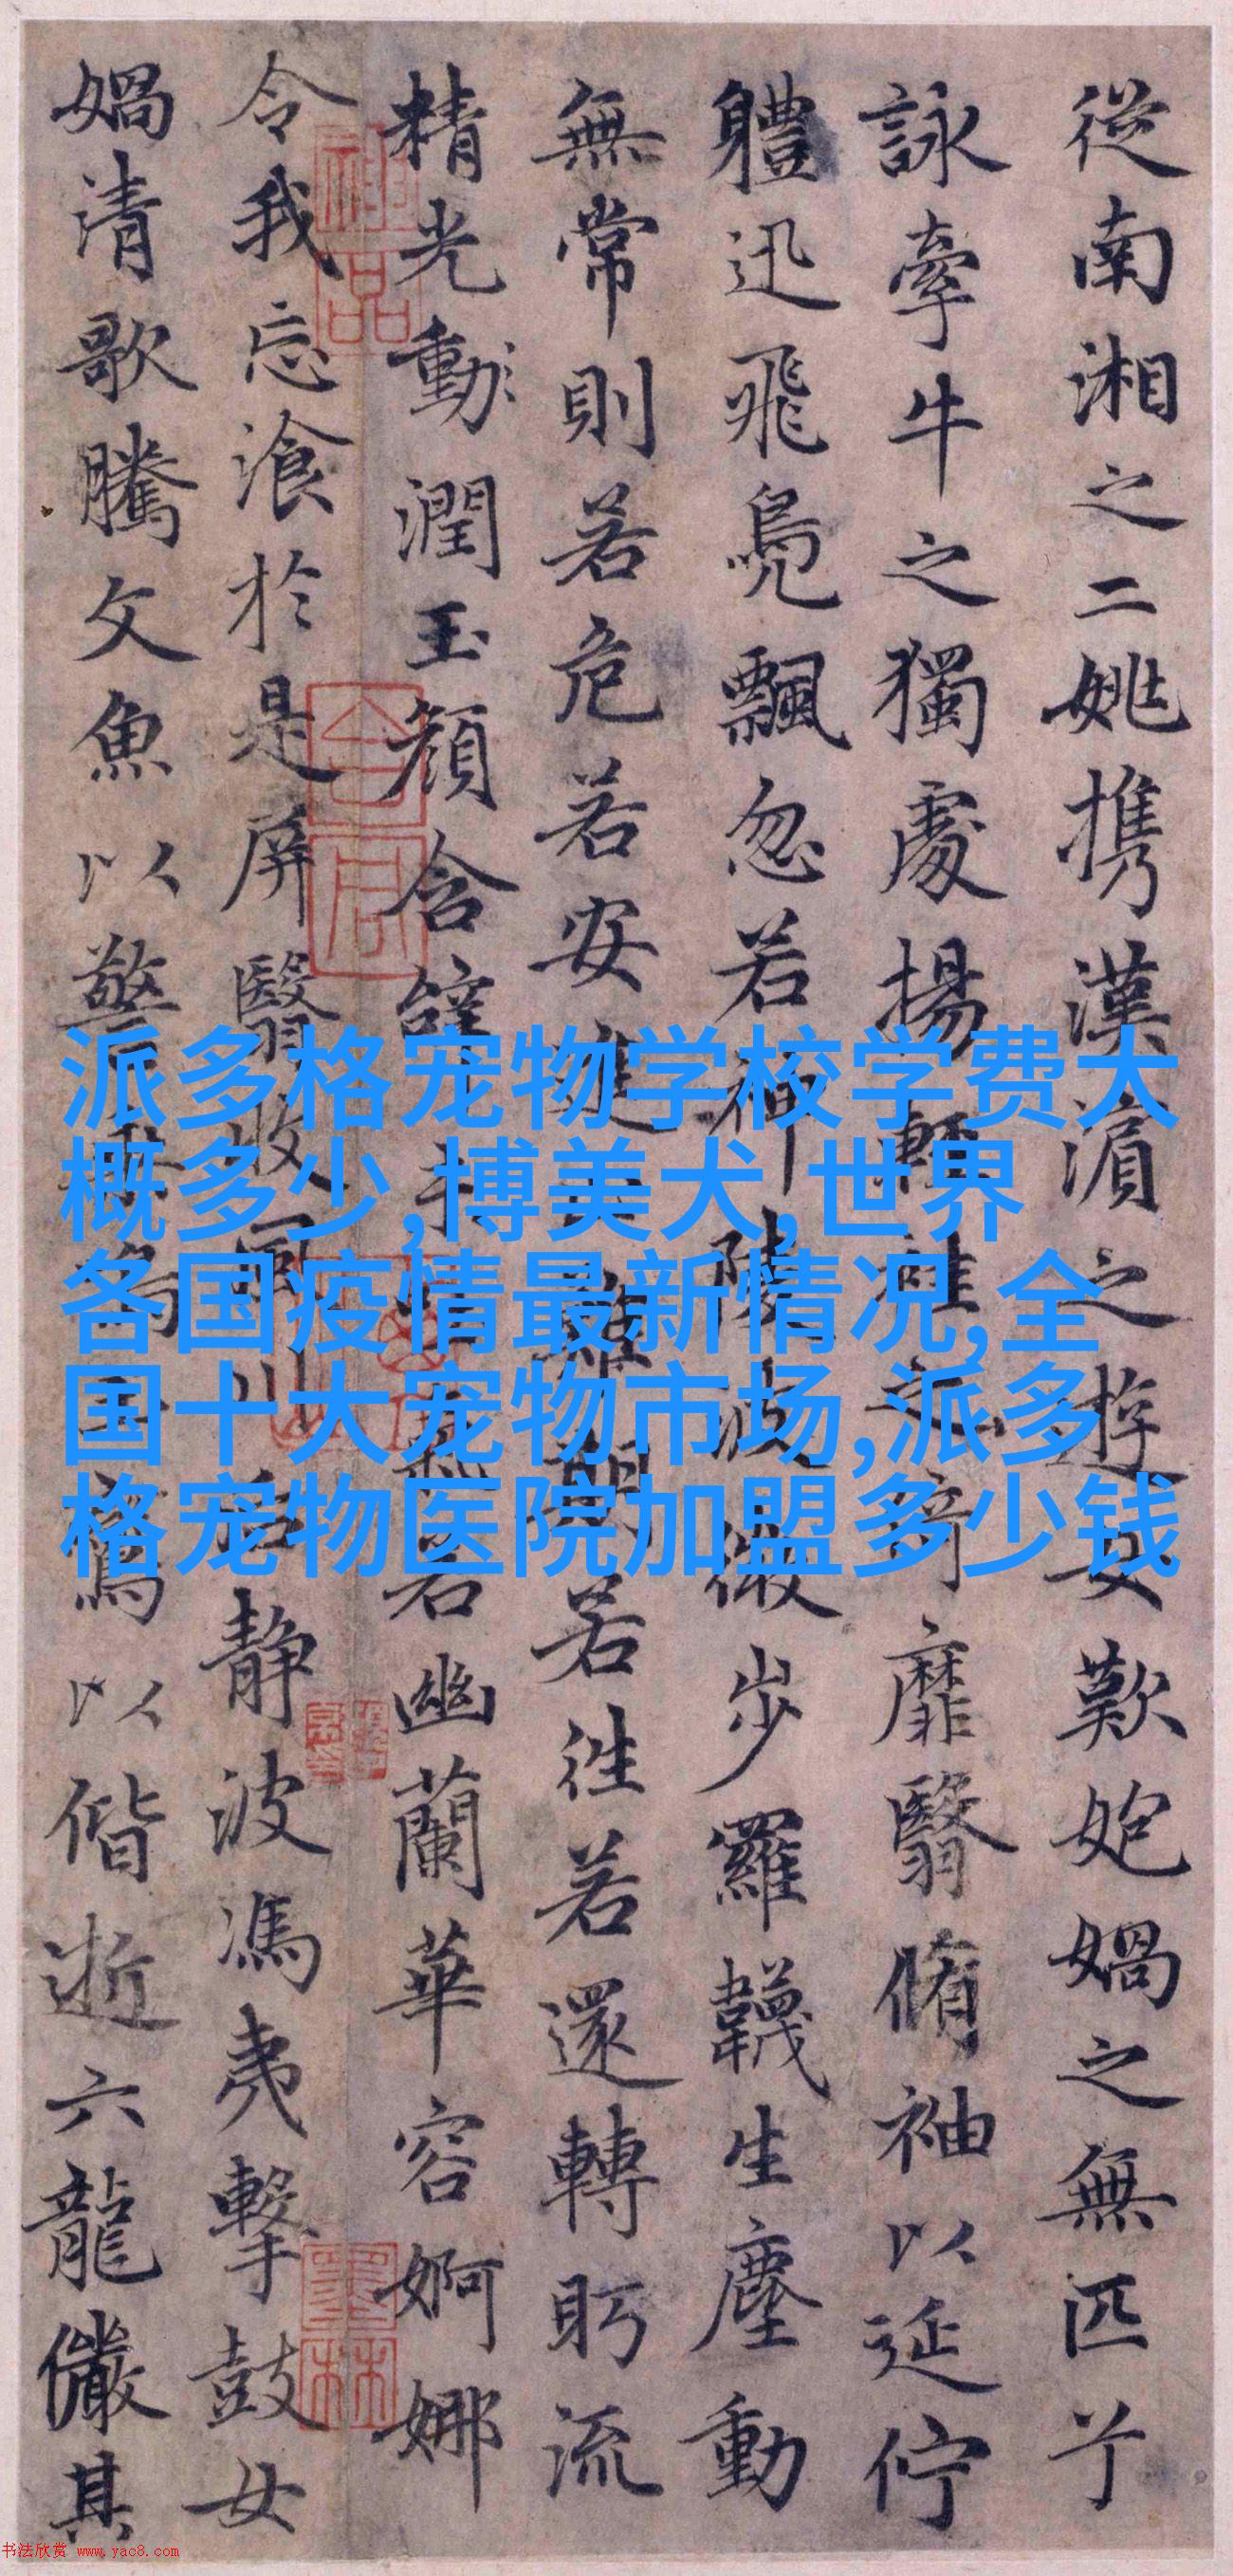 從南湘之二姚携漢濵之遊女歎媧之無匹兮
詠牽牛之獨處揚輕袿之猗靡翳脩袖以延佇
軆迅飛鳧飄忽若神陵波微步羅韈生塵動
無常則若危若安進止難期若往若還轉眄流
精光動潤玉顔含辭未吐氣若幽蘭華容婀娜
令我忘飡於是屏翳收風川后静波馮夷擊鼓女
媧清歌騰文魚以警乘鳴玉鸞以偕逝六龍儼其
派多格宠物学校学费大
概多少,博美犬,世界
各国疫情最新情况,全
国十大宠物市场,派多
格宠物医院加盟多少钱
书法欣赏 www.yac8.com